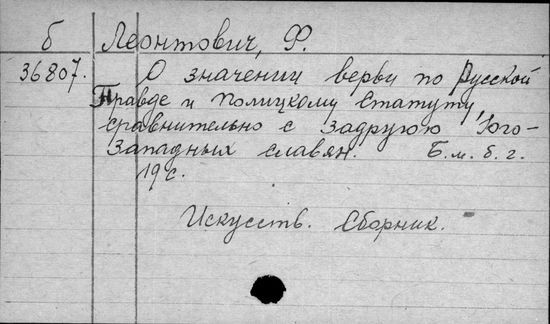 б Леонтович, Ф.
36807. О значении верви по Русской
Правде и Полицкому Статуту,
сравнительно с задругою Юго-
Западных славян. Б.м.б.г.
19 с.
Искусств. Сборник.